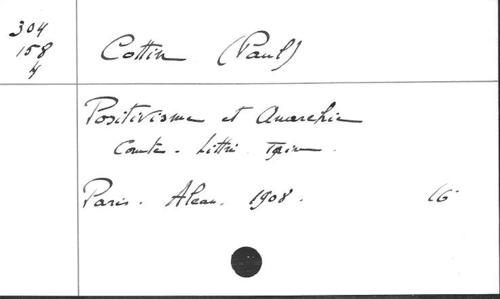 304
158
4
Cottin (Paul)
Positivisme et Anarchie
Comte - Littré - Taine.
Paris. Alcan. 1908. 16°